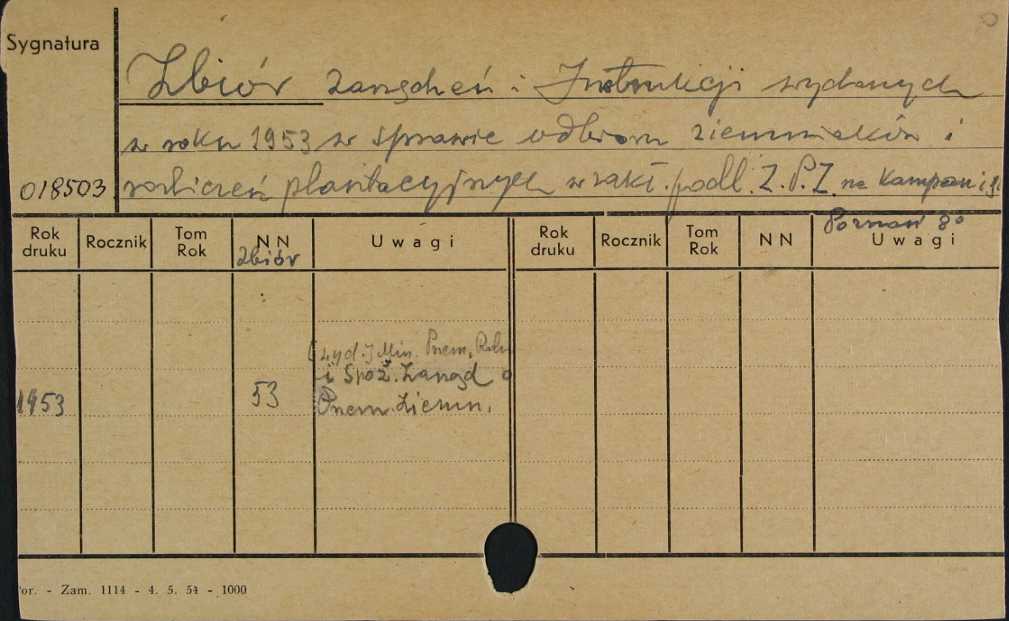 Sygnatura
Zbiór zarządzeń i Instrukcji wydanych
w roku 1953 w sprawie odbioru ziemniaków i
018503 rozliczeń plantacyjnych w zakł. podl. Z.P.Z na kampan i
Poznań 8°
Rok druku Rocznik Tom Rok NN Uwagi Rok druku Rocznik Tom Rok NN Uwagi
zbiór
[Wyd.] Min. Przem. Roln
i Spoż. Zarząd
1953 53 Przem. Ziemn.
or. - Zam. 1114 - 4. 5. 54 - 1000